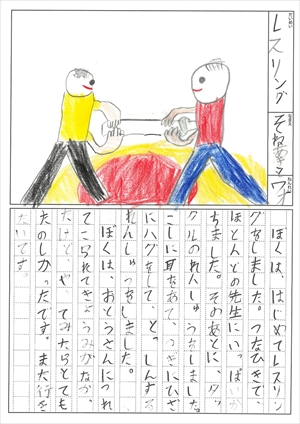 レスリング
ぼくは、はじめてレスリン
グをしました。つなひきで、
ほとんどの先生にいっぱいか
ちました。そのあとに、タッ
クルのれんしゅうをしました。
こしに耳をあて、つぎにひざ
にハグをして、とっしんする
れんしゅうをしました。
ぼくは、おとうさんにつれ
てこられてきょうみがなか
たけど、や てみたらとても
たのしかったです。また行き
たいです。